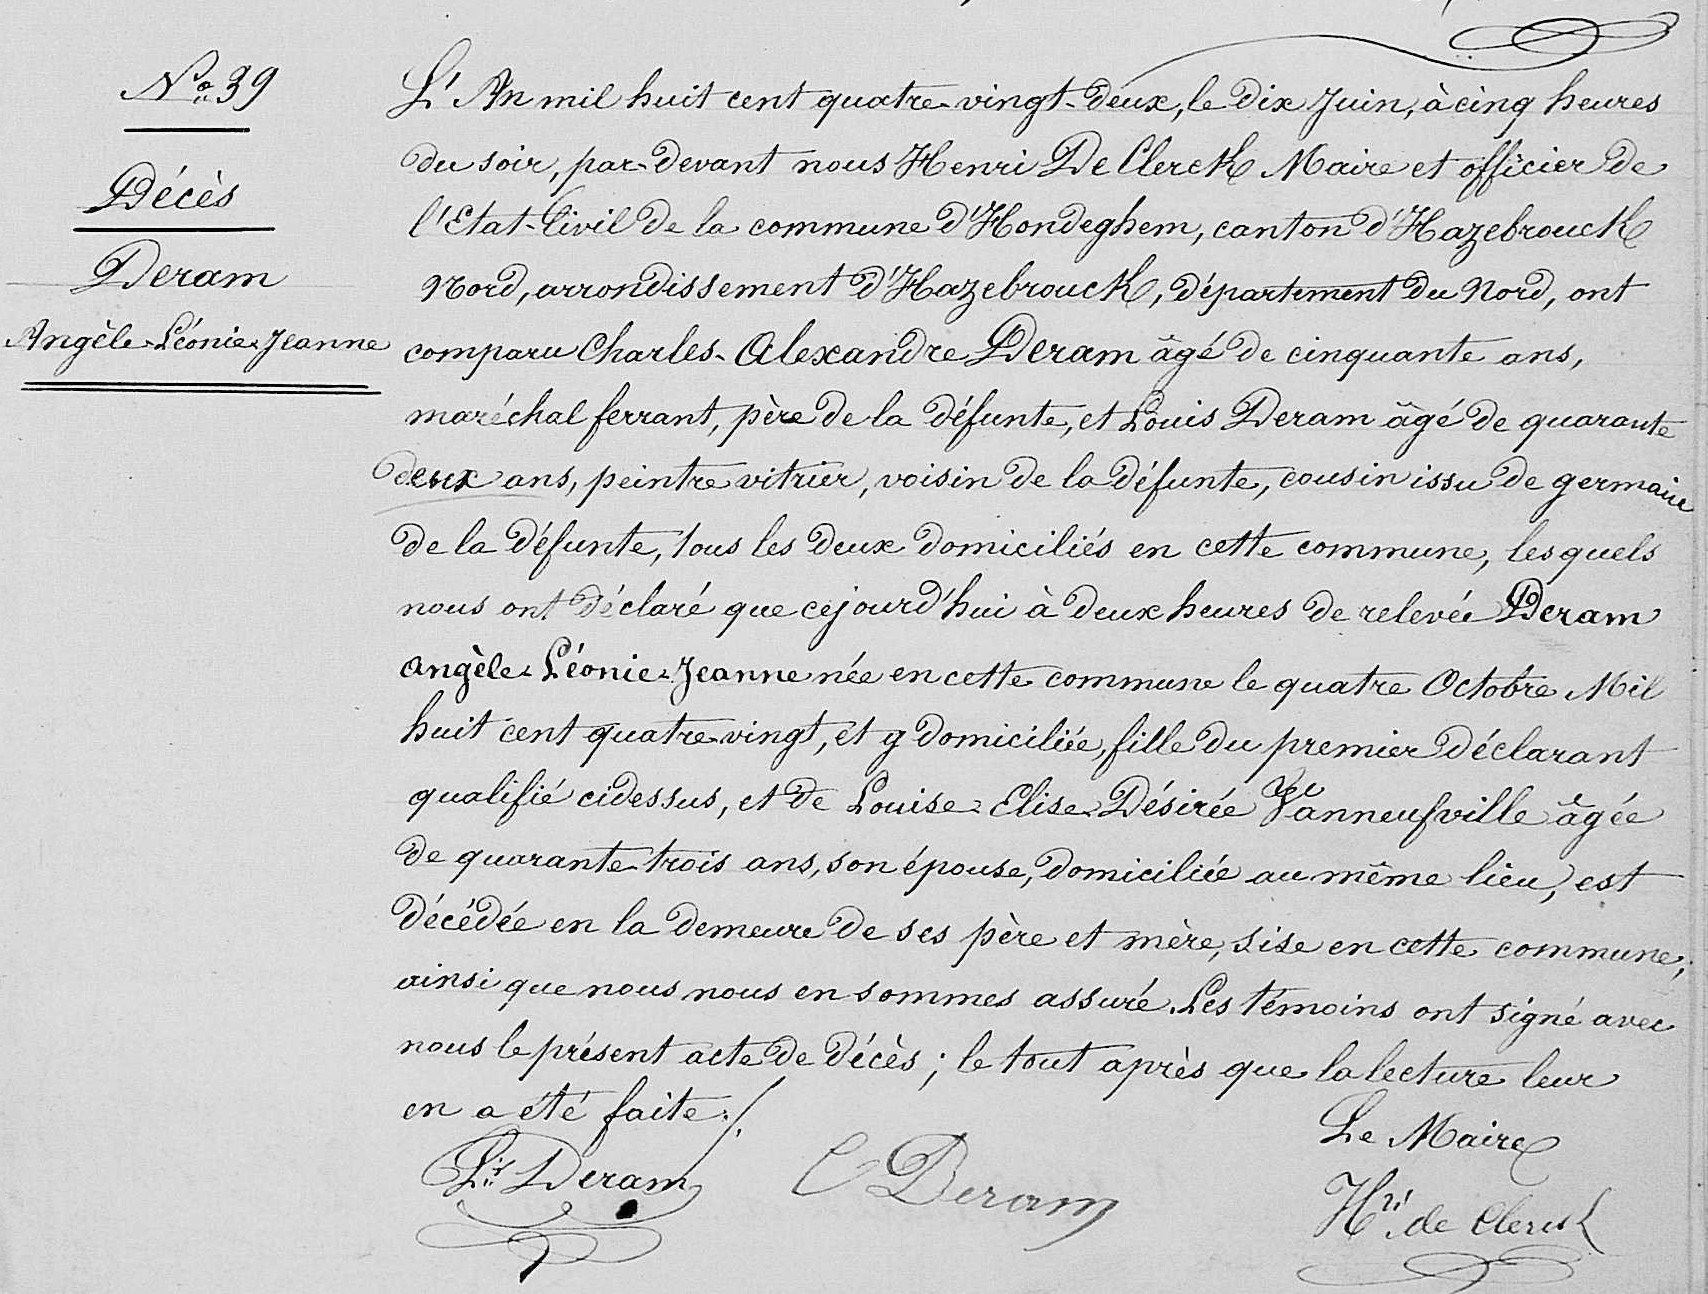 No 39
Décès
Deram
Angèle-Léonie-Jeanne
L'An mil huit cent quatre-vingt-deux, le dix Juin, à cinq heures
du soir, par-devant nous Henri De Clerck Maire et officier de
l'Etat-Civil de la commune d'Hondeghem, canton d'Hazebrouck
Nord, arrondissement d'Hazebrouck, département du Nord, ont
comparu Charles-Alexandre Deram âgé de cinquante ans,
maréchal ferrant, père de la défunte, et Louis Deram âgé de quarante
deux ans, peintre vitrier, voisin de la défunte, cousin issu de germain
de la défunte, tous les deux domiciliés en cette commune, lesquels
nous ont déclaré que cejourd'hui à deux heures de relevée Deram
Angèle-Léonie-Jeanne née en cette commune le quatre Octobre Mil
huit cent quatre-vingt, et y domiciliée, fille du premier déclarant
qualifié cidessus, et de Louise-Elise-Désirée Vanneufville âgée
de quarante-trois ans, son épouse, domiciliée au même lieu, est
décédée en la demeure de ses père et mère, sise en cette commune,
ainsi que nous nous en sommes assuré. Les témoins ont signé avec
nous le présent acte de décès ; le tout après que la lecture leur
en a été faite ./.
Ls Deram
C Deram
Le Maire
Hri de Clerck